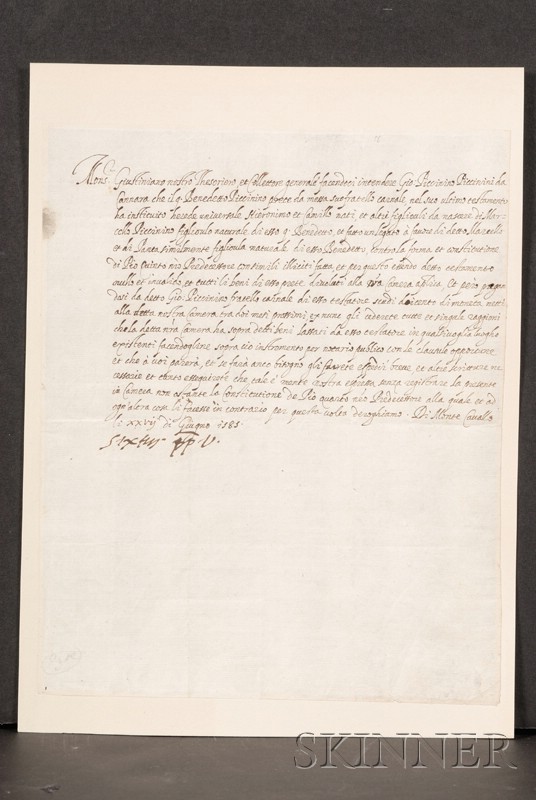 Mons.r Giustiniano nostro Thesoriero et Collettore generale facendoci intendere Gio: Piccinino Piccinini da
Cannara che il q. Benedetto Piccinino prete da messa suo fratello carnale, nel suo ultimo testamento
ha instituito herede universale Hieronimo et Camillo nati, et altri figlioli da nascere di Mar-
cello Piccinino figliolo naturale di esso q. Benedetto, et fatto un legato à favore di detto Marcello
et di similmente figliola naturale di esso Benedetto, contro la forma et constitutione
di Pio Quinto nro Predecessore consimili illiciti fatta, et per questo essendo detto testamento
nullo et invalido, et tutti li beni di esso prete devoluti alla nra Camera Aplica. Et però pagan
dosi da detto Gio: Piccinino fratello carnale di esso testatore scudi docento di moneta netti
alla detta nostra Camera tra doi mesi prossimi ex nunc gli cederete tutte et singule raggioni
che la detta nra Camera ha sopra detti beni lassati da esso testatore in qualsivoglia luogho
existenti facendogline sopra ciò instrumento per notario publico con le clausule opportune
et che à voi parerà, et se farà anco bisogno gli farete espedir breve, et altre scritture ne-
cessarie et tanto essequirete che tale è mente nostra espressa senza registrare la presente
in Camera non ostante la constitutione de Pio quarto nro Predecessore alla quale et ad
ogn'altra cosa che facesse in contrario per questa volta deroghiamo. Di Monte Cavallo
li xxvij di Giugno 1585
Sixtus pp V.
SKINNER